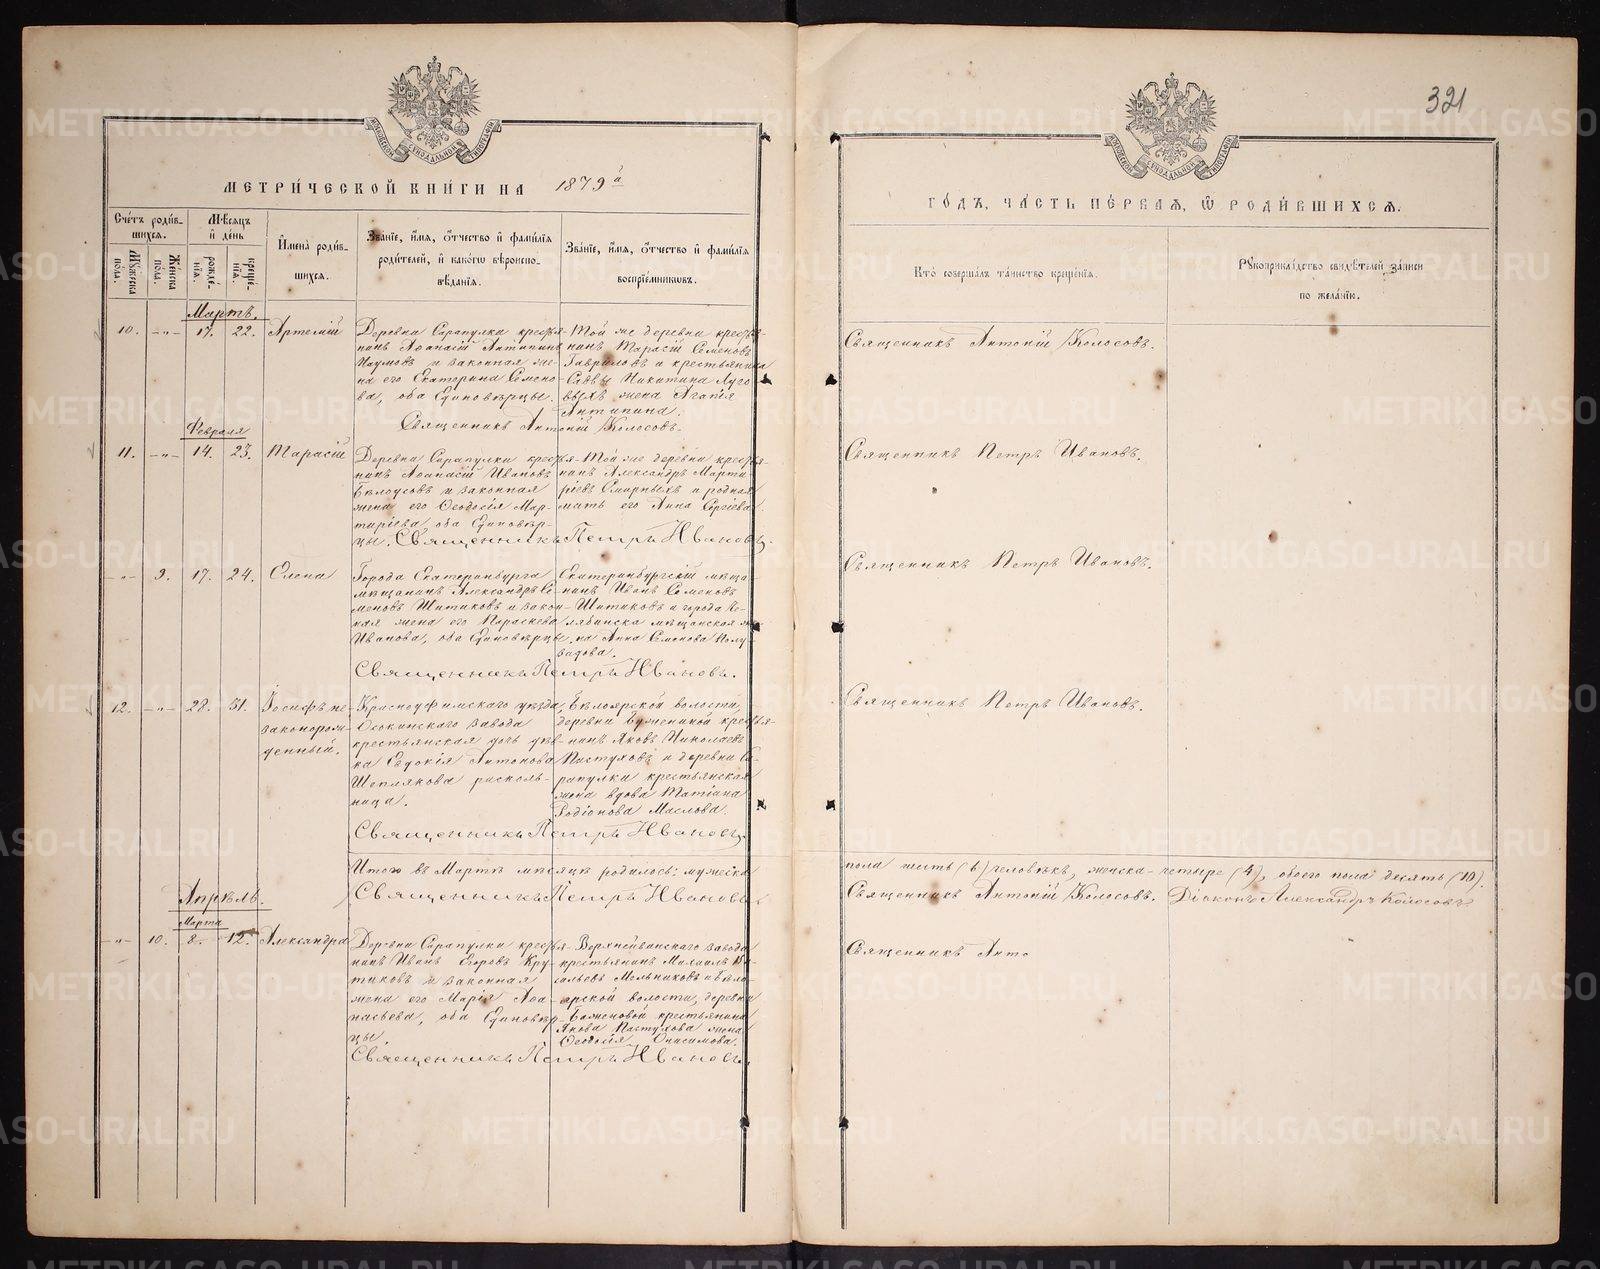 321
МЕТРИ́ЧЕСКОЙ КНИ́ГИ НА 1879 а̀
ГО́ДЪ, ЧА́СТЬ ПЕ́РВАѦ, Ѿ РОДИ́ВШИХСѦ.
Сче́тъ роди́в-
шихсѧ.
Мꙋжеска пола.
Же́нска пола.
Мѣ́сѧцъ
и҆ де́нь
рожде́-
нїѧ.
креще́-
нїѧ.
И҆мена̀ роди́в-
шихсѧ.
Зва́нїе, и҆́мѧ, о҆́тчество и҆ фами́лїѧ
роди́телей, и҆ како́гѡ вѣроиспо-
вѣ́данїѧ.
Зва́нїе, и҆́мѧ, о҆́тчество и҆ фами́лїѧ
воспрїе́мникѡвъ.
Кто̀ соверша́лъ та́инство креще́нїѧ.
Рꙋкоприкла́дство свидѣ́телей за́писи
по жела́нїю.
Мартъ.
10. -„- 17. 22. Артемій
Деревня Сарапулки крестья-
нинъ Аѳанасій Антипинъ
Наумовъ и законная же-
на его Екатерина Семено-
ва, оба Единовѣрцы.
Той же деревни крестья-
нинъ Тарасій Семеновъ
Гавриловъ и крестьянина
Саввы Никитина Луго-
выхъ жена Агапія
Антипина.
Священникъ Антоній Колосовъ.
Священникъ Антоній Колосовъ.
Февраля
11. -„- 14. 23. Тарасій
Деревни Сарапулки крестья-
нинъ Аѳанасій Ивановъ
Бѣлоусовъ и законная
жена его Ѳеодосія Мар-
тиріева, оба Единовѣр-
цы.
Той же деревни крестья-
нинъ Александръ Марти-
ріевъ Смирныхъ и родная
мать его Анна Сергіева.
Священникъ Петръ Ивановъ.
Священникъ Петръ Ивановъ.
-„- 9. 17. 24. Елена
Города Екатеринбурга
мѣщанинъ Александръ Се-
меновъ Шитиковъ и закон-
ная жена его Параскева
Иванова, оба Единовѣрцы.
Екатеринбургскій мѣща-
нинъ Иванъ Семеновъ
Шитиковъ и города Че-
лябинска мѣщанская же-
на Анна Семенова
Священникъ Петръ Ивановъ.
Священникъ Петръ Ивановъ.
12. -„- 28. 31. Іосифъ не-
законорож-
денный.
Красноуфимскаго уѣзда,
Осокинскаго завода
крестьянская дочь дѣв-
ка Евдокія Антонова
Щеплякова расколь-
ница.
Бѣлоярской волости,
деревни Бужениной крестья-
нинъ Яковъ Николаевъ
Пастуховъ и деревни Са-
рапулки крестьянская
жена вдова Татіана
Родіонова Маслова.
Священникъ Петръ Ивановъ.
Священникъ Петръ Ивановъ.
Итого въ Мартѣ мѣсяцѣ родилось: мужеска
пола шесть (6) человѣкъ, женска - четыре (4), обоего пола десять (10).
Священникъ Петръ Ивановъ.
Священникъ Антоній Колосовъ. Діаконъ Александръ Колосовъ
Апрѣль.
Марта
-„- 10. 8. 12. Александра
Деревни Сарапулки крестья-
нинъ Иванъ Егоровъ Кру-
тиковъ и законная
жена его Марія Аѳа-
насьева, оба Единовѣр-
цы.
Верхнейвинскаго завода
крестьянинъ Михаилъ Ва-
сильевъ Мельниковъ и Бѣло-
ярской волости, деревни
Баженовой крестьянина
Якова Пастухова жена
Ѳеодосія Онисимова.
Священникъ Петръ Ивановъ.
Священникъ Анто
METRIKI.GASO-URAL.RU